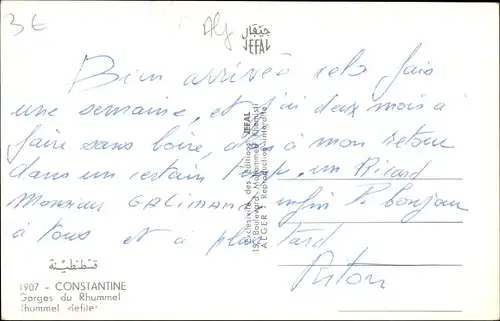 3€
Alg
جيفال
JEFAL
Bien arrivée cela fais
une semaine, et j'ai deux mois à
faire sans boire, à mon retour
dans un certain un Ricard
Monsieur GALIMAND enfin Bonjour
à tous et à plus tard
Riton
Exclusivité des Editions JEFAL
Boulevard Mohammed Khemisti
ALGER - Reproduction interdite
قسنطينة
1907 - CONSTANTINE
Gorges du Rhummel
Rhummel defiles